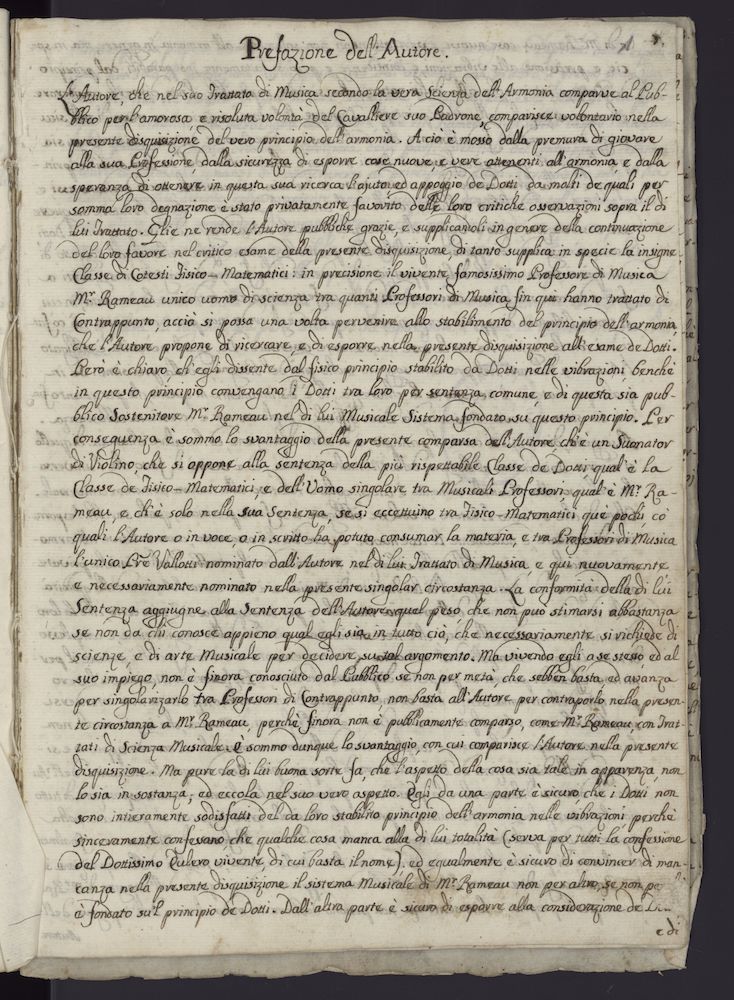 Prefazione dell'Autore.
L'Autore, che nel suo Trattato di Musica secondo la vera scienza dell'Armonia comparve al Pub-
blico per l'amorosa e risoluta volontà del Cavaliere suo Padrone, comparisce volontario nella
presente disquisizione del vero principio dell'armonia. A ciò è mosso dalla premura di giovare
alla sua Professione, dalla sicurezza di esporre cose nuove e vere attenenti all'armonia e dalla
speranza di ottenere in questa sua ricerca l'ajuto, ed appoggio de Dotti da molti de quali per
somma loro degnazione è stato privatamente favorito delle loro critiche osservazioni sopra il di
lui Trattato. Glie ne rende l'Autore pubbliche grazie, e supplicandoli in genere della continuazione
del loro favore nel critico esame della presente disquisizione, di tanto supplica in specie la insigne
Classe di Cotesti Fisico-Matematici: in precisione il vivente famosissimo Professore di Musica
Mr. Rameau unico uomo di scienza tra quanti Professori di Musica fin quì hanno trattato di
Contrappunto, acciò si possa una volta pervenire allo stabilimento del principio dell'armonia,
che l'Autore propone di ricercare, e di esporre nella presente disquisizione all'esame de Dotti.
Però è chiaro, ch'egli dissente dal fisico principio stabilito da Dotti nelle vibrazioni benchè
in questo principio convengano i Dotti tra loro per sentenza comune, e di questa sia pub-
blico Sostenitore Mr. Rameau nel di lui Musicale Sistema fondato su questo principio. Per
conseguenza è sommo lo svantaggio della presente comparsa dell'Autore, ch'è un Suonator
di Violino, che si oppone alla sentenza della più rispettabile Classe de Dotti qual'è la
Classe de Fisico-Matematici, e dell'Uomo singolare tra Musicali Professori qual'è Mr. Ra-
meau, e ch'è solo nella sua Sentenza, se si eccettuino tra Fisico-Matematici que pochi co
quali l'Autore o in voce, o in scritto ha potuto consumar la materia, e tra Professori di Musica
l'unico Pre Vallotti nominato dall'Autore nel di lui Trattato di Musica, e quì nuovamente
e necessariamente nominato nella presente singolar circostanza. La conformità della di lui
Sentenza aggiugne alla Sentenza dell'Autore quel peso, che non può stimarsi abbastanza
se non da chi conosce appieno qual egli sia in tutto ciò, che necessariamente si richiede di
scienze, e di arte Musicale per decidere su tal argomento. Ma vivendo egli a se stesso ed al
suo impiego, non è finora conosciuto dal Pubblico se non per metà, che sebben basta ed avanza
per singolarizarlo tra Professori di Contrappunto, non basta all'Autore per contraporlo nella presen-
te circostanza a Mr. Rameau, perchè finora non è pubblicamente comparso, come Mr. Rameau, con Trat-
tati di Scienza Musicale. È sommo dunque lo svantaggio, con cui comparisce l'Autore nella presente
disquisizione. Ma pure la di lui buona sorte fa, che l'aspetto della cosa sia tale in apparenza non
lo sia in sostanza; ed eccola nel suo vero aspetto. Egli da una parte è sicuro che i Dotti non
sono intieramente sodisfatti del da loro stabilito principio dell'armonia nelle vibrazioni, perchè
sinceramente confessano che qualche cosa manca alla di lui totalità (serva per tutti la confessione
del Dottissimo Eulero vivente di cui basta il nome), ed egualmente è sicuro di convincer di man-
canza nella presente disquisizione il sistema Musicale di Mr. Rameau non per altro, se non pe
è fondato sul principio de Dotti. Dall'altra parte è sicuro di esporre alla considerazione de
e di